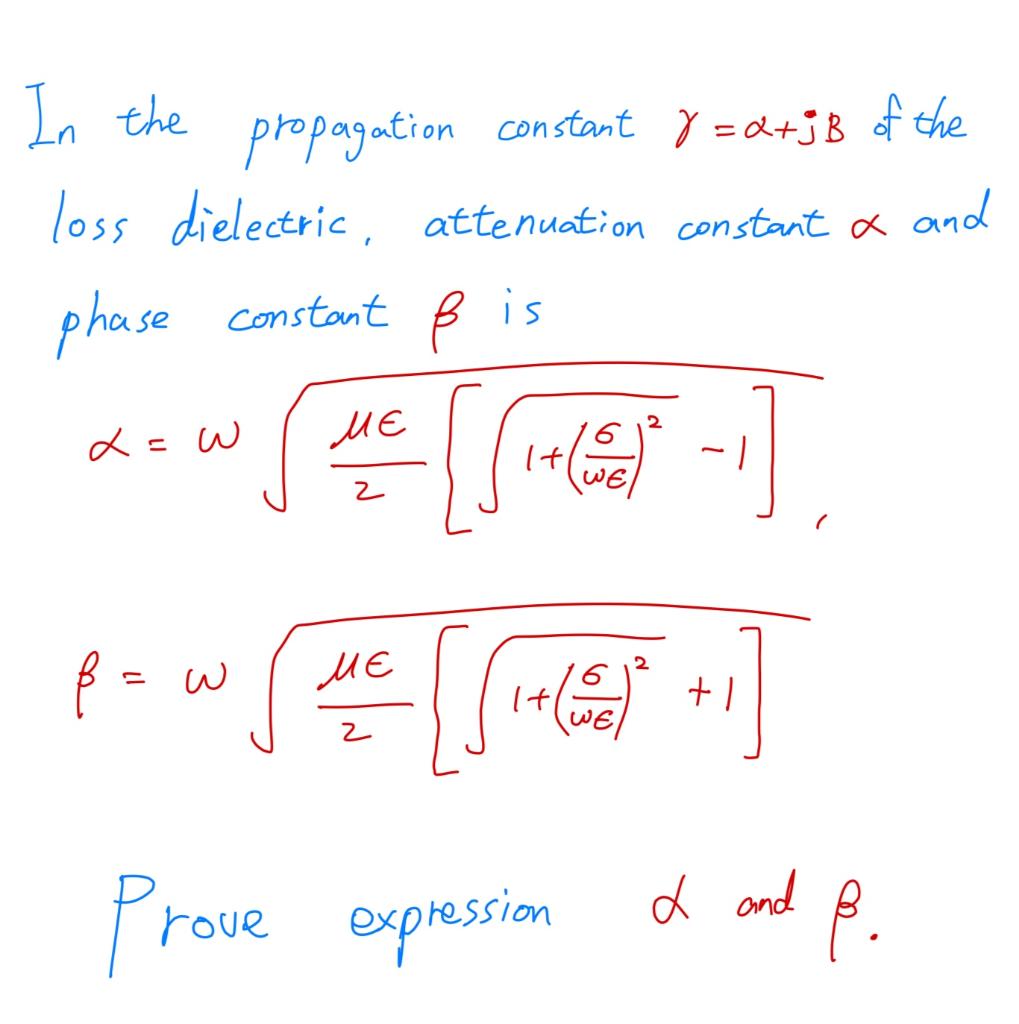 In the propagation constant γ = α+jB of the
loss dielectric, attenuation constant α and
phase constant β is
α = ω √( με/2 [ √( 1+(σ/ωε)² ) - 1 ] ) ,
β = ω √( με/2 [ √( 1+(σ/ωε)² ) + 1 ] )
Prove expression α and β.